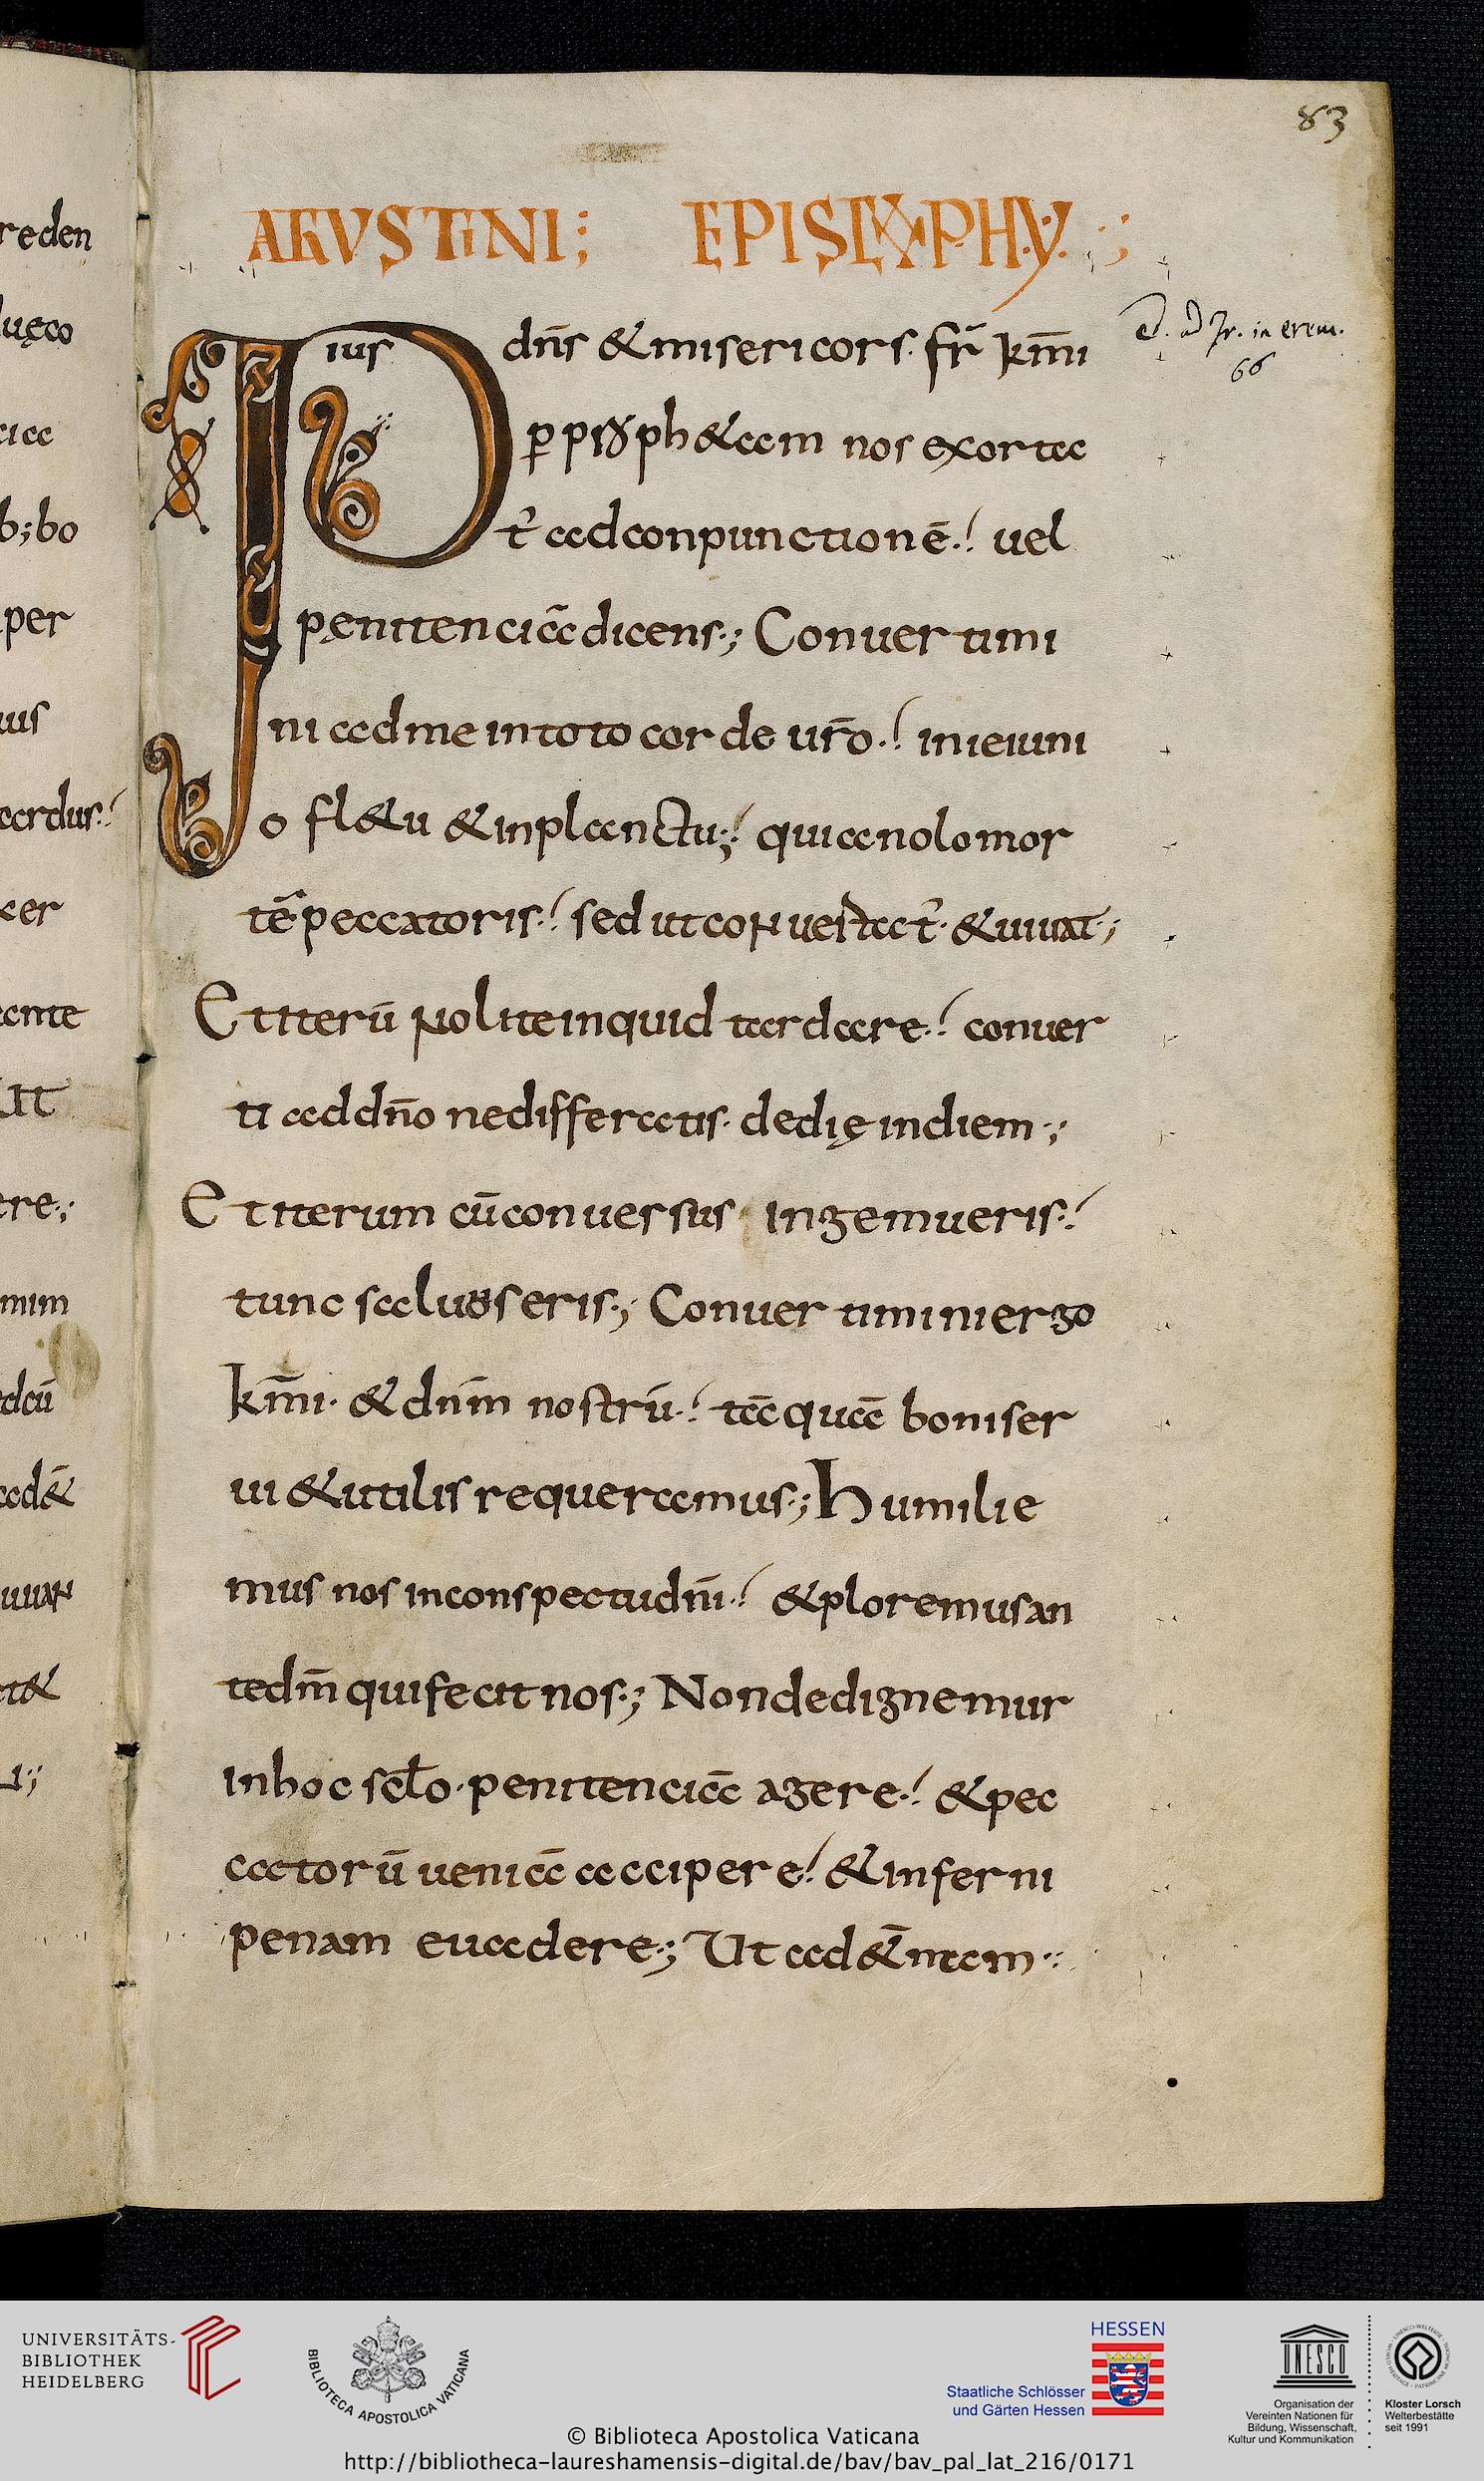 83
AGVSTINI; EPISCOPHI;
Pius dn̄s & misericors. fr̄ km̄i
p̱ ꝓph&am nos exorta
t̉ ad conpunctionē. uel
pęnitenciā dicens; Conuertimi
ni ad me in toto corde ur̄o. in ieiuni
o fl&u & in planctu; quia nolo mor
tē peccatoris. sed ut conuertat̉. & uiuat;
Et iterū nolite inquid tardare. conuer
ti ad dn̄o ne differatis. de dię in diem;
Et iterum cū conuersus ingemueris.
tunc saluus eris; Conuertimini ergo
km̄i. & dnm̄ nostrū. tā quā boni ser
ui & utilis requeramus; Humilie
mus nos in conspectu dn̄i. & ploremus an
te dm̄ qui fecit nos; Non dedignemur
in hoc sclo. penitenciā agere. & pec
catorū veniā accipere. & inferni
penam euadere; Ut ad &̄nam
reden
luęco
b;bo
per
uus
tardus.
cer
ente
ere;
mim
dcū
ad&̄
uuan
UNIVERSITÄTS-
BIBLIOTHEK
HEIDELBERG
BIBLIOTECA APOSTOLICA VATICANA
HESSEN
Staatliche Schlösser
und Gärten Hessen
UNESCO
Organisation der
Vereinten Nationen für
Bildung, Wissenschaft,
Kultur und Kommunikation
Kloster Lorsch
Welterbestätte
seit 1991
© Biblioteca Apostolica Vaticana
http://bibliotheca-laureshamensis-digital.de/bav/bav_pal_lat_216/0171